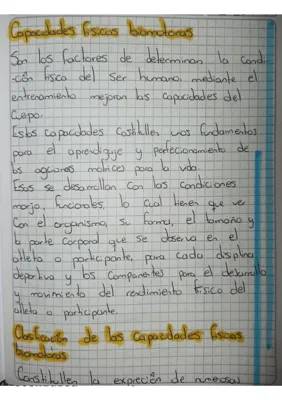 Capacidades físicas biomotoras
Son los factores de determinan la condi-
ción física del ser humano, mediante el
entrenamiento mejoran las capacidades del
cuerpo.
Estas capacidades costitullen unos fundamentos
para el aprendizaje y perfeccionamiento de
las acciones motrices para la vida
Esas se desarrollan con las condiciones
morfo, funcionales, lo cual tienen que ver
con el organismo, su forma, el tamaño y
la parte corporal que se observa en el
atleta o participante, para cada displina
deportiva y los componentes para el desarrollo
y movimiento del rendimiento físico del
atleta o participante.
Clasificación de las capacidades físicas
biomotoras
Constitullen la expreción de numerosas